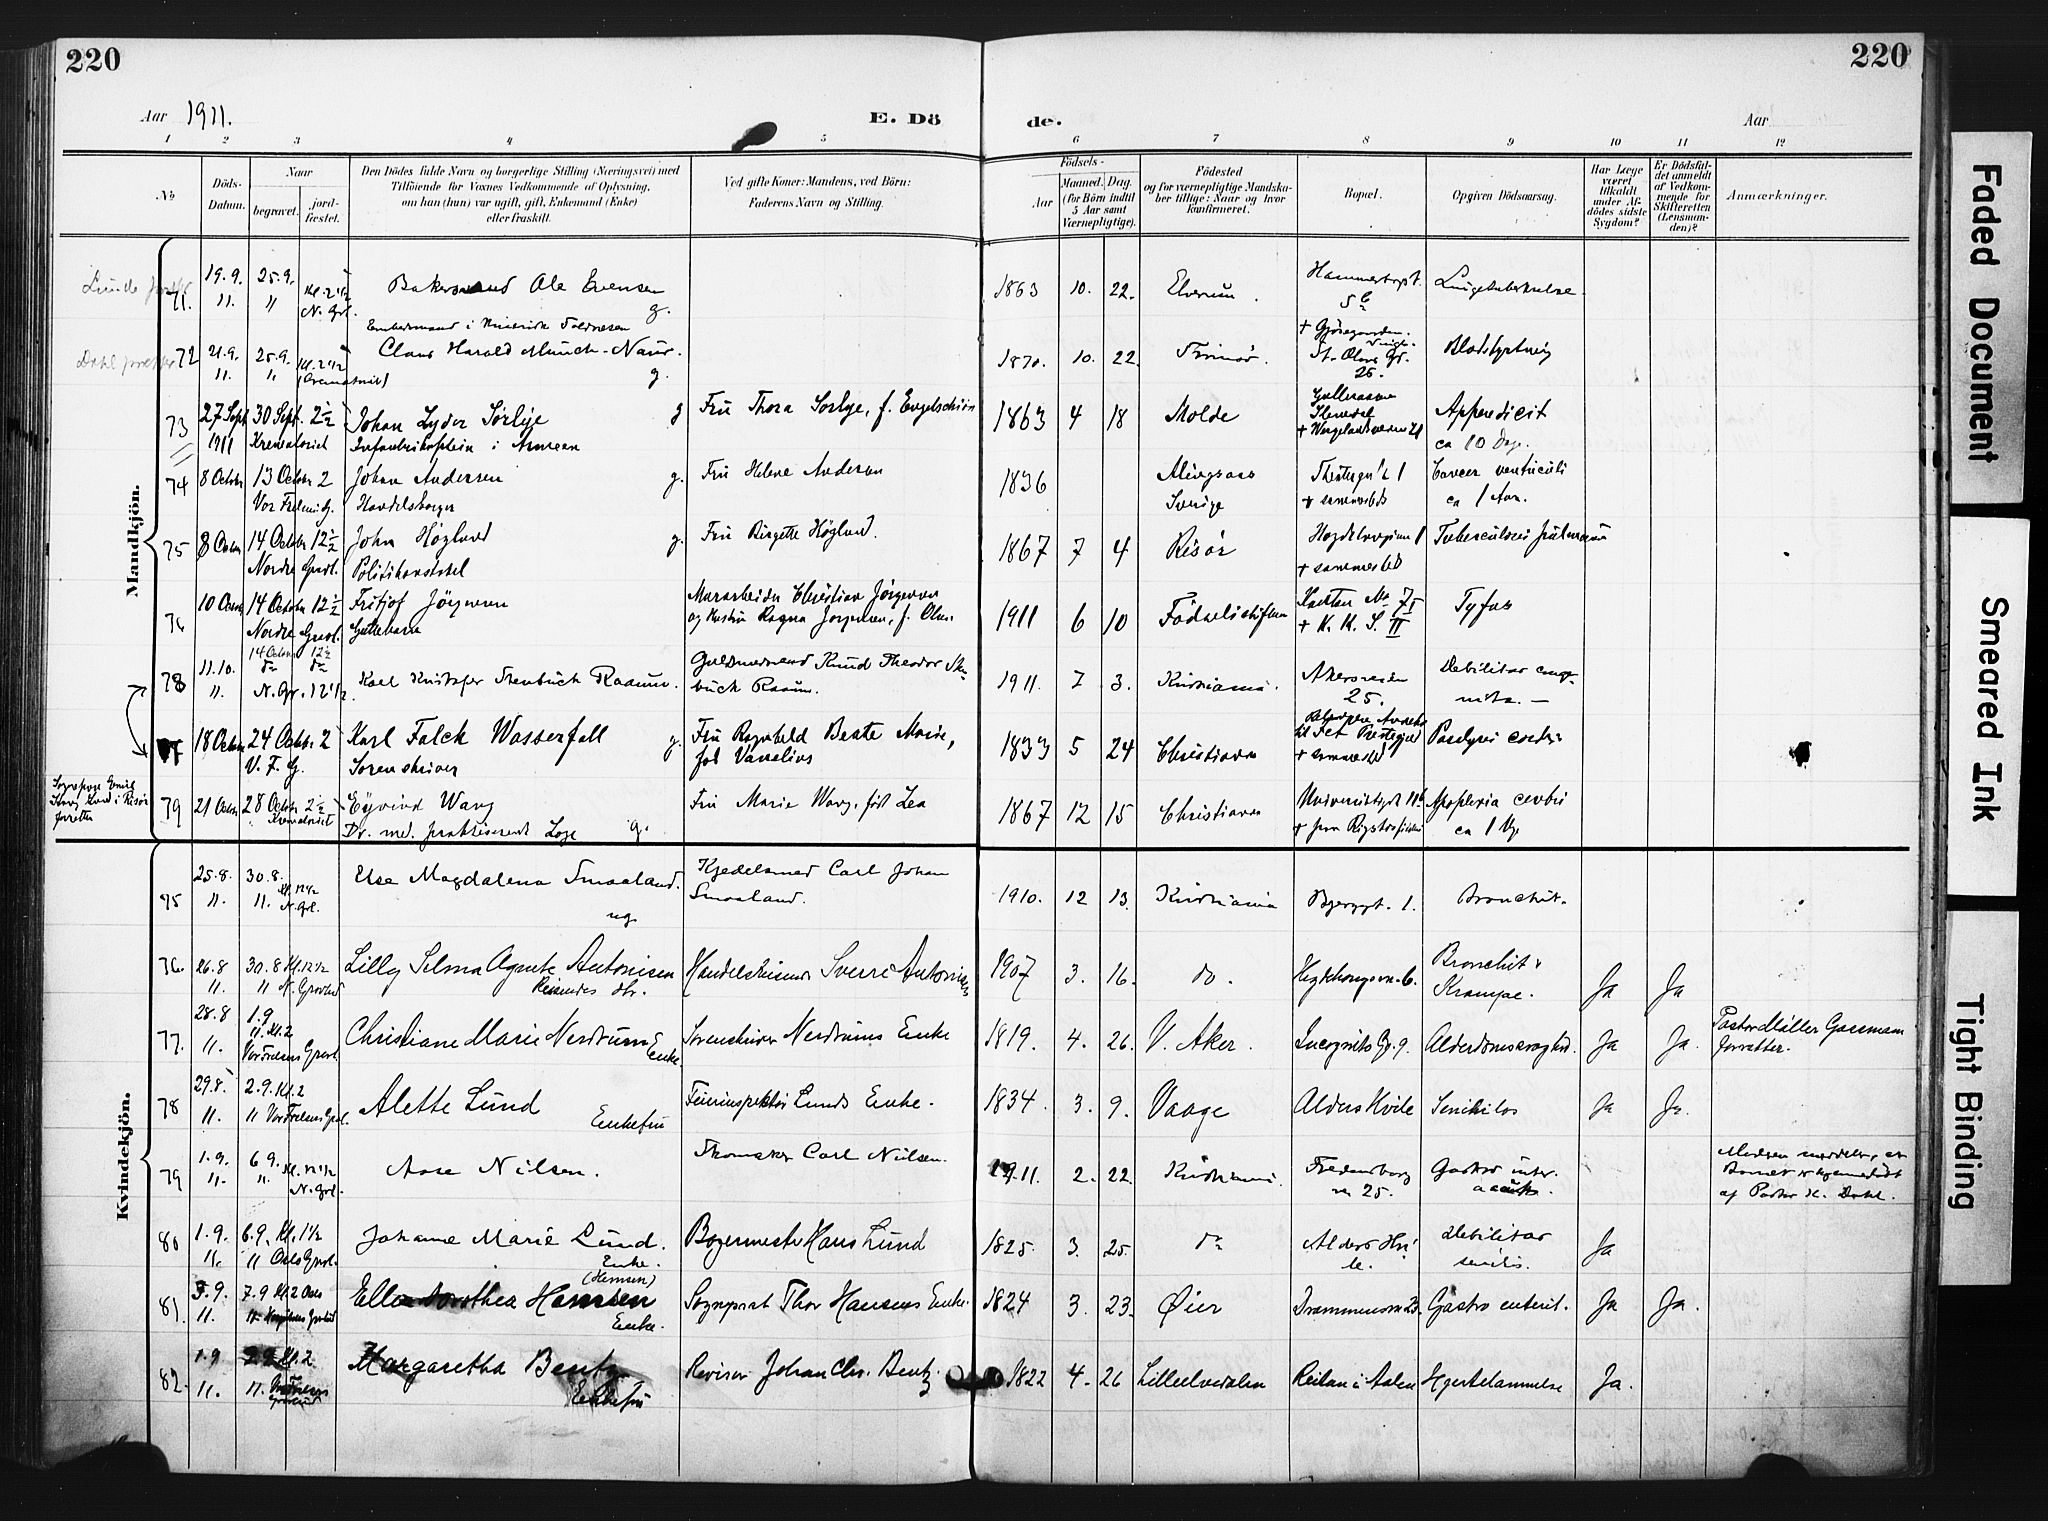 220
220
Aar 1911.
E. Dö
de.
Aar
1 2 3 4 5 6 7 8 9 10 11 12
No
Döds-Datum.
Naar
begravet.
jord-festet.
Den Dödes fulde Navn og borgerlige Stilling (Næringsvei) med
Tilföiende for Voxnes Vedkommende af Oplysning,
om han (hun) var ugift, gift, Enkemand (Enke)
eller fraskilt.
Ved gifte Koner: Mandens, ved Börn:
Faderens Navn og Stilling.
Födsels-
Aar
Maaned. Dag.
(for Börn indtil
5 Aar samt
Værnepligtige).
Födested
og for værnepligtige Mandska-
ber tillige: Naar og hvor
konfirmeret.
Bopæl.
Opgiven Dödsaarsag.
Har Læge
været
tilkaldt
under Af-
dödes sidste
Sygdom?
Er Dödsfal-
det anmeldt
af Vedkom-
mende for
Skifteretten
(Lensman-
den)?
Anmærkninger.
Mandkjön.
71. 19.9. 11. 25.9. 11 Kl. 2 1/2 N. Grl. Ole Evensen g. 1863 10. 22. Elverum. Lungetuberkulose.
72 21.9. 11. 25.9. 11 Kl. 2 1/2 Claus Harald Munch-Naur. g. 1870. 10. 22. St. Olavs Gd. 25. Blodstyrtning
73 27 Sept 1911 30 Sept. 2 1/2 Krematoriet Johan Lyder Sørlye g Fru Thora Sørlye, f. Engelschiøn 1863 4 18 Molde Appendicit ca 10 Dage.
74 8 October 13 October 2 Johan Andersen g. Handelsborger Fru Helene Andersen 1836 Alingsaas Sverige + sammesteds Cancer ventriculi ca 1 Aar.
75 8 October 14 October 12 1/2 Nordre Gravl. John Høglund g. Politikonstabel Fru Birgitte Høglund. 1867 7 4 Risør + sammested Tuberculosis pulmonum
76 10 October 14 October 12 1/2 Nordre Gravl. Fritjof Jörgensen Guttebarn Murarbeider Christian Jørgensen og Hustru Ragna Jørgensen, f. Olsen 1911 6 10 Födselsstiftelsen + K. K. S. II Tyfus
78 11.10. 11. 14 October 12 1/2 N. Gr. 12 1/2 Karl Kristofer Stenbuch Raaum. Guldsmedsvend Knud Theodor Stenbuch Raaum. 1911. 7. 3. Kristiania. Akersveien 25. Debilitas congenita.
77 18 October 24 Octobr. 2 V. F. G. Karl Falck Wasserfall g. Sorenskriver Fru Ragnhild Beate Marie, 1833 5 24 Christiania + sammested Paralysis cordis
79 21 October 28 October 2 1/2 Krematoriet Eyvind Wang Dr. med. praktiserende Læge g. Fru Marie Wang, født Lea 1867 12 15 Christiania Apoplexia cerebri
Kvindekjön.
75 25.8. 11. 30.8. 11. Kl. 12 1/2 N. Grl. Else Magdalena Smaaland. ug. Kjedelsmed Carl Johan Smaaland. 1910. 12 13. Kristiania Bjergt. 1. Bronchit.
76. 26.8 11. 30.8 11 Kl. 12 1/2 N. Gravlund Lilly Selma Agnete Antonisen Reisendes dtr. Handelsreisende Sverre Antonisen 1907 3. 16. do. Bronchit & Krampe. Ja Ja
77. 28.8 11. 1.9 11. Kl. 2 Vor Frelsers Gravl. Christiane Marie Nerdrum Enke. Sorenskriver Nerdrums Enke 1819. 4. 26. V. Aker. Incognito Gd. 9. Alderdomssvaghed. Ja Ja. Pastor Møller Gasmann forretter.
78 29.8. 11. 2.9. Kl. 2 11 Vor Frelsers Gravl. Alette Lund Enkefru Lunds Enke. 1834. 3. 9. Vaage Alders Hvile Senilitas Ja Ja.
79 1.9. 11. 6.9. 11. Kl. 12 1/2 N. Grl. Aase Nilsen. Carl Nilsen. 1911. 2. 22. Kristiania. Fredensborg vn. 25. Gastro enter. acuta. Moderen meddeler, at Barnet er hjemmedöbt af Pastor H. Dahl.
80 1.9. 11. 6.9. Kl. 1 1/2 11 Oslo Gravl. Johanne Marie Lund. Enke. Bogermester Hans Lund 1825. 3. 25. do Alders Hvile. Debilitas senilis. Ja
81. 3.9. 11. 7.9 Kl. 2 Oslo Ellen Dorothea Hansen (Hansen) Enke. Sogneprest Thor Hansens Enke. 1824 3. 23. Øier Drammensvn 23. Gastro enterit. Ja Ja.
82. 1.9 11. Kl. 2 11. Margaretha Bentz Enkefru Revisor Johan Chr. Bentz. 1822 4. 26 Lilleelvedalen Reitan i Aalen Hjertelammelse Ja.
Faded Document
Smeared Ink
Tight Binding